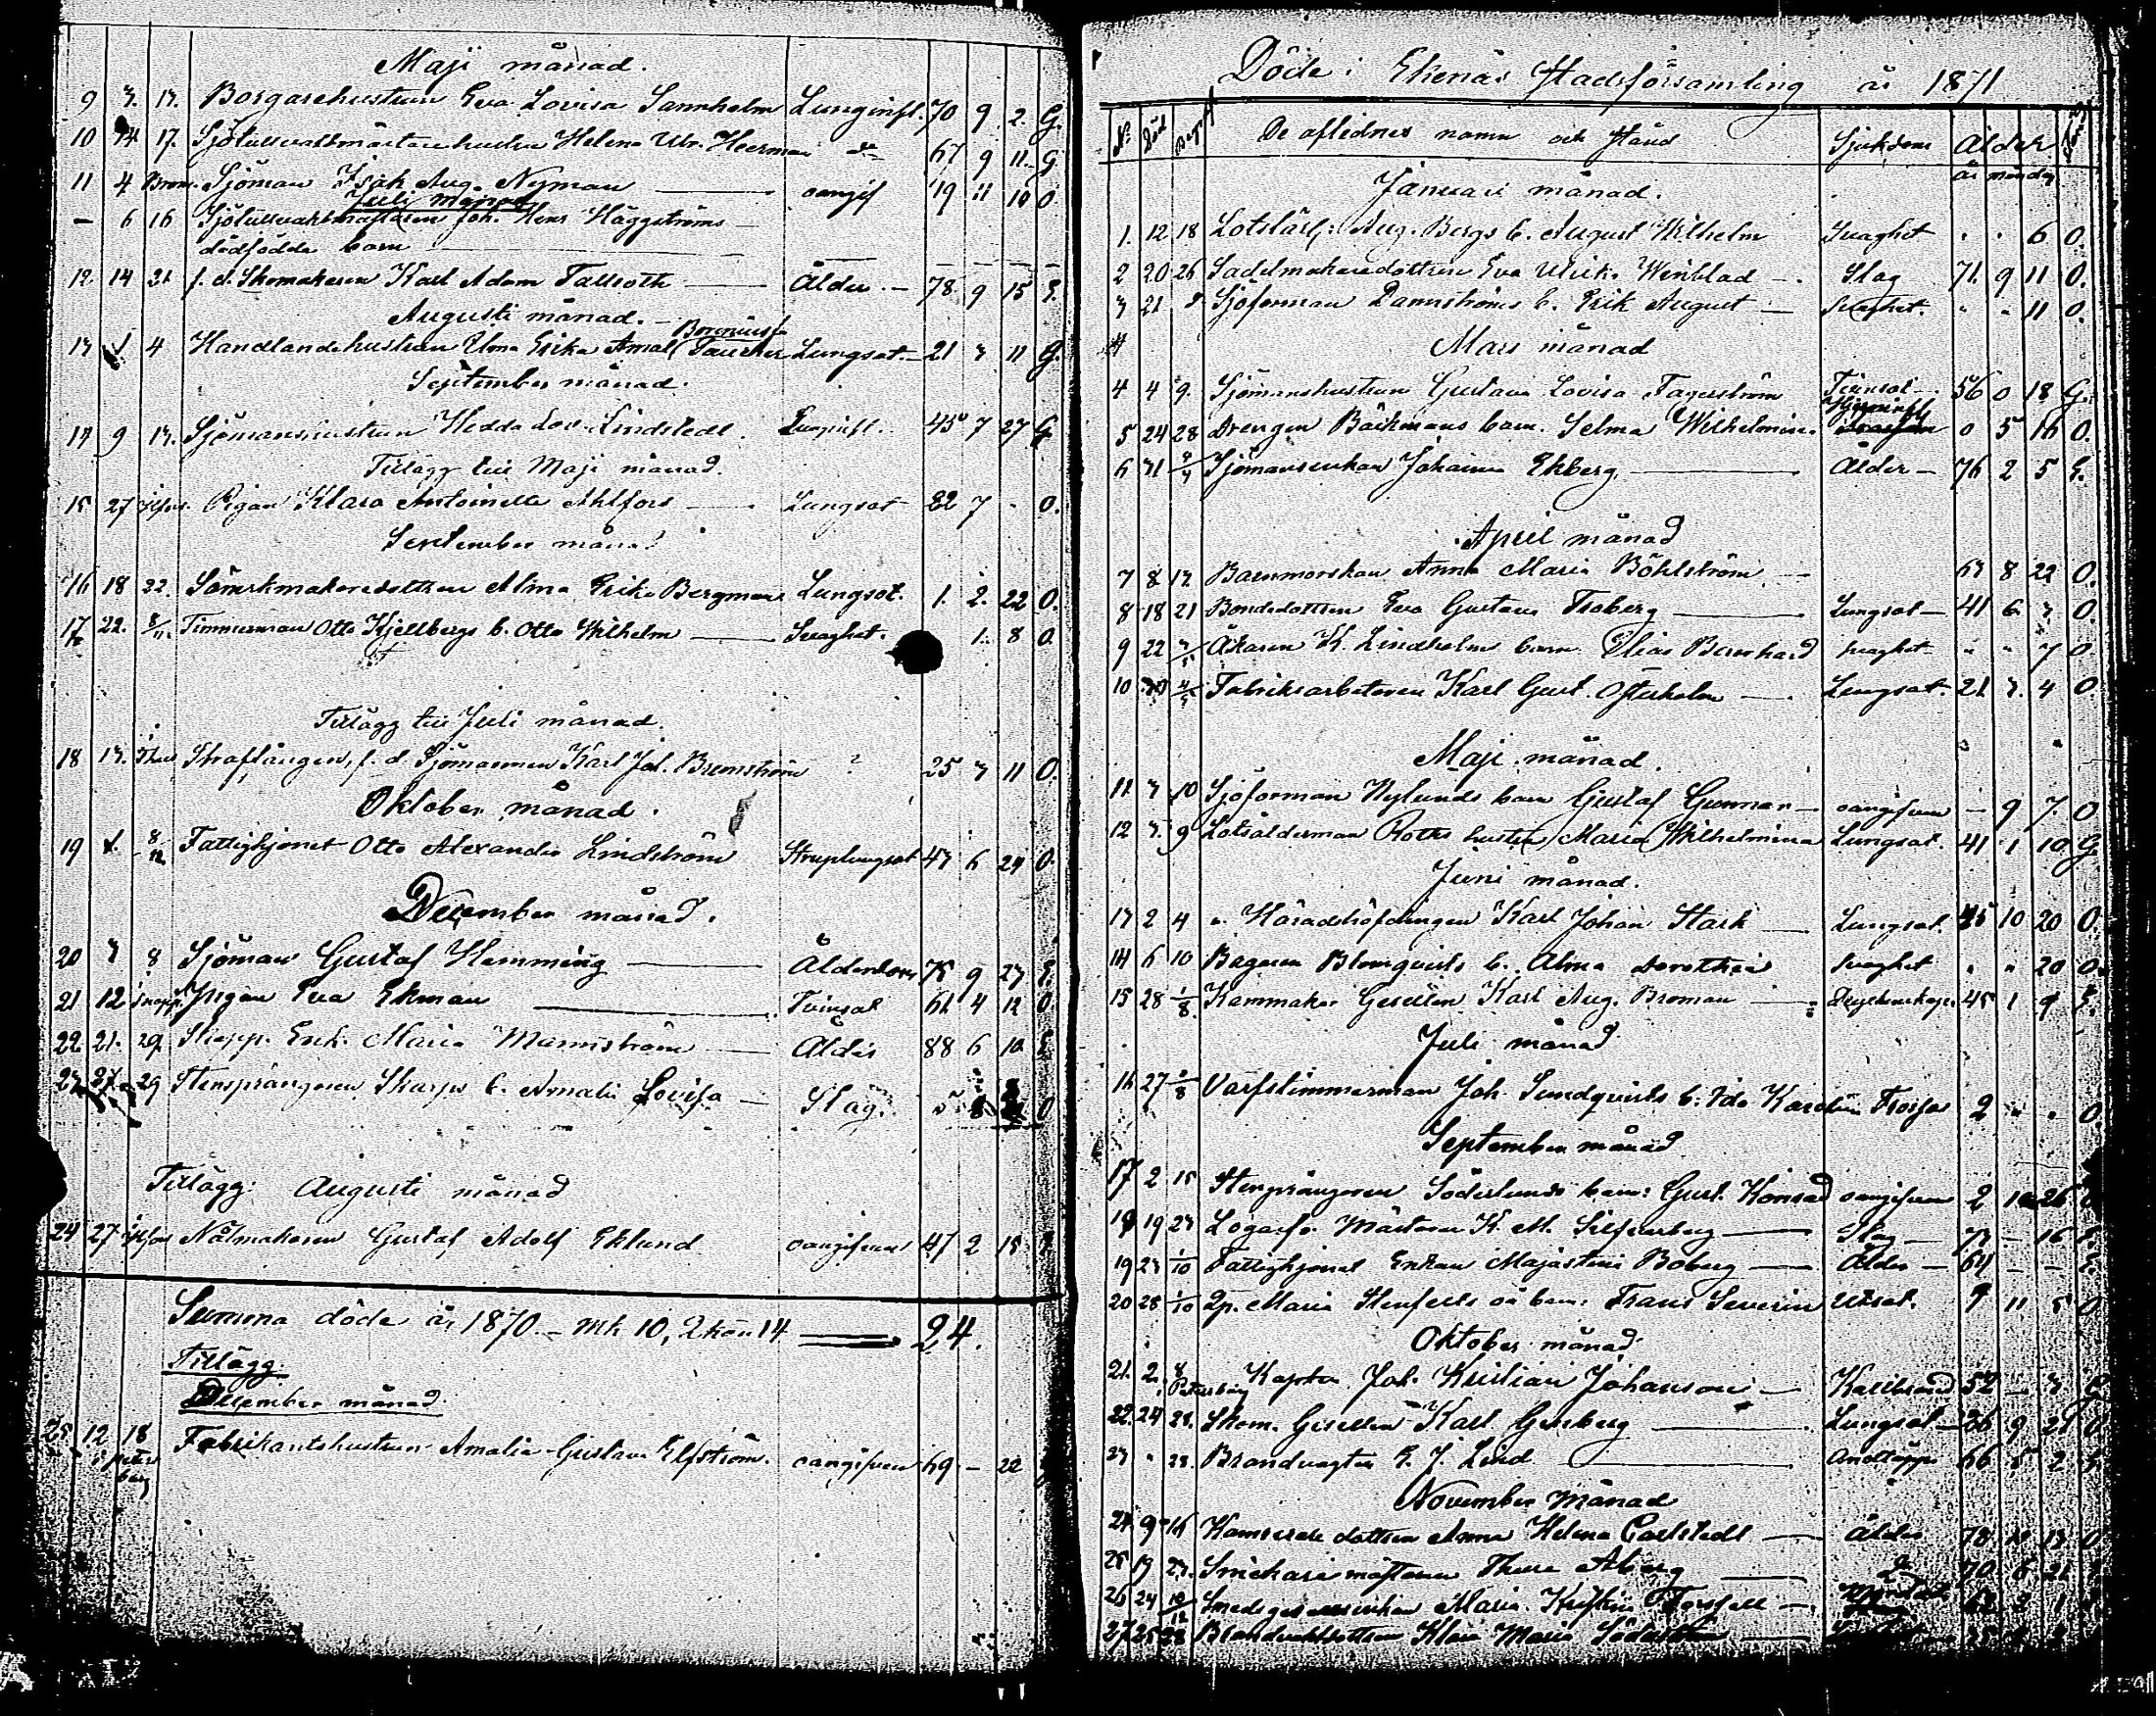 Maji månad.
9 3. 13. Borgarehustrun Eva Lovisa Sannholm Lunginfl. 70 9 2. G.
10 14 17. Sjötullvaktmästarehustru Helena Ulr. Heerman do 67 9 11. G
11 4 Sjöman Isak Aug. Nyman oangif 19 11 10 O.
Juli månad
- 6 16 Sjötullvaktmästaren Joh. Henr Häggströms
dödfödda barn
12. 14 21 f. d. Skomakaren Karl Adam Tallroth Ålder 78 9 15 E.
Augusti månad.
13 1 4 Handlandehustrun Ulma Erika Amal Taucher Lungsot. 21 3 11 G.
September månad.
14 9 13. Sjömanshustrun Hedda Lov. Lindstedt Lunginfl. 45 7 27 G
Tillägg till Maji månad.
15 27 Pigan Klara Antoinette Ahlfors Lungsot 22 7 - O.
September månad
16 18 22. Alma Erika Bergman Lungsot. 1. 2. 22 O.
17 22. 8/11. Timmerman Otto Kjellbergs b. Otto Wilhelm Svaghet. 1. 8 O.
Tillägg till Juli månad.
18 13. Straffången, f. d. Sjömannen Karl Joh. Bremström ? 25 3 11 O.
Oktober månad.
19 1. 8/12 Fattighjonet Otto Alexander Lindström Struplungsot 43 6 24 O.
December månad.
20 3 8 Sjöman Gustaf Hemming Ålderdom 75 9 23 E.
21 12 Pigan Eva Ekman Tvinsot 61 4 12 O.
22. 21. 29. Skepp. Enk. Maria Mannström Ålder 88 6 10 E.
23 27. 29 Stensprängaren Skarps b. Amalia Lovisa Slag.
Tillägg: Augusti månad
24 27 Nålmakaren Gustaf Adolf Eklund oangifven 47 2 15
Summa döde år 1870. - Mk 10, Qkön 14 24.
Tillägg.
December månad.
25. 12. 18 Fabrikantshustrun Amalia Gustava Elfström. oangifven 69 - 22
Döde i Ekenäs Stadsförsamling år 1871
No Död Begraf De aflidnes namn och stånd Sjukdom Ålder
år månad dag
Januari månad.
1. 12 18 Lotslärl. Aug. Bergs b. August Wilhelm Svaghet " " 6 O.
2 20 26 Sadelmakaredottren Eva Ulrika Winblad Slag 71. 9 11 O.
3 21 " Sjöforman Dannströms b. Erik August Svaghet. " " 11 O.
Mars månad
4 4 9. Sjömanshustrun Gustava Lovisa Fagerström Tvinsot 56 0 18 G.
5 24 28 Drengen Bäckmans barn. Selma Wilhelmina 0 5 16 O.
6 31 Sjömansenkan Johanna Ekberg Ålder 76 2 5 E.
April månad
7 8 13. Barnmorskan Anna Maria Böhlström 63 8 22 O.
8 18 21 Bondedottren Eva Gustava Troberg Lungsot 41 6 3 O.
9 22 3/5 Åkaren K. Lindholms barn Elias Bernhard Svaghet " " 7 O
10 30 4/5 Fabriksarbetaren Karl Gust. Österholm Lungsot. 21 3. 4 O
Maji månad.
11 3 10 Sjöforman Nylunds barn Gustaf Gunnar oangifven - 9 7. O
12 3. 9 Lotsålderman Roths hustru Maria Wilhelmina Lungsot. 41 1 10 G.
Juni månad.
13 2 4 v. Häradshöfdingen Karl Johan Stark Lungsot. 45 10 20 O.
14 6 10 Bagaren Blomqvists b. Alma Dorothea Svaghet " " 20 O.
15 28 1/8 Kammakar Gesellen Karl Aug. Broman 45 1 9 E.
Juli månad
16 27 2/8 Varfstimmerman Joh. Sundqvists b. Ida Karolina 2 " " O.
September månad
17 2 15 Stensprängaren Söderlunds barn: Gust. Konrad oangifven 2 10 26
18 19 23 K. M. Silfverberg Slag 73 - 16
19 23 1/10 Fattighjonet Enkan Majastina Boberg Ålder 64 - -
20 28 1/10 Qp. Maria Stenfelts oä barn: Frans Severin Utsot. 9 11 5 O
Oktober månad
21. 2. 8 Petersburg Kapten Joh. Kristian Johansson Kallbrand 52 - 3
22. 24 28. Skom. Gesellen Karl Ginberg Lungsot 36 9 21 O
23 " 28. Brandvagten E. J. Lind Andtäppa 66 5 2
November månad
24 9 16 Kamrerare dottren Anna Helena Carlstedt Ålder 78 10 13 O
25 19 23. Åberg do 70 6 21
26 24 10/12 Maria Kristina Forssell
27 25 28 Klara Maria